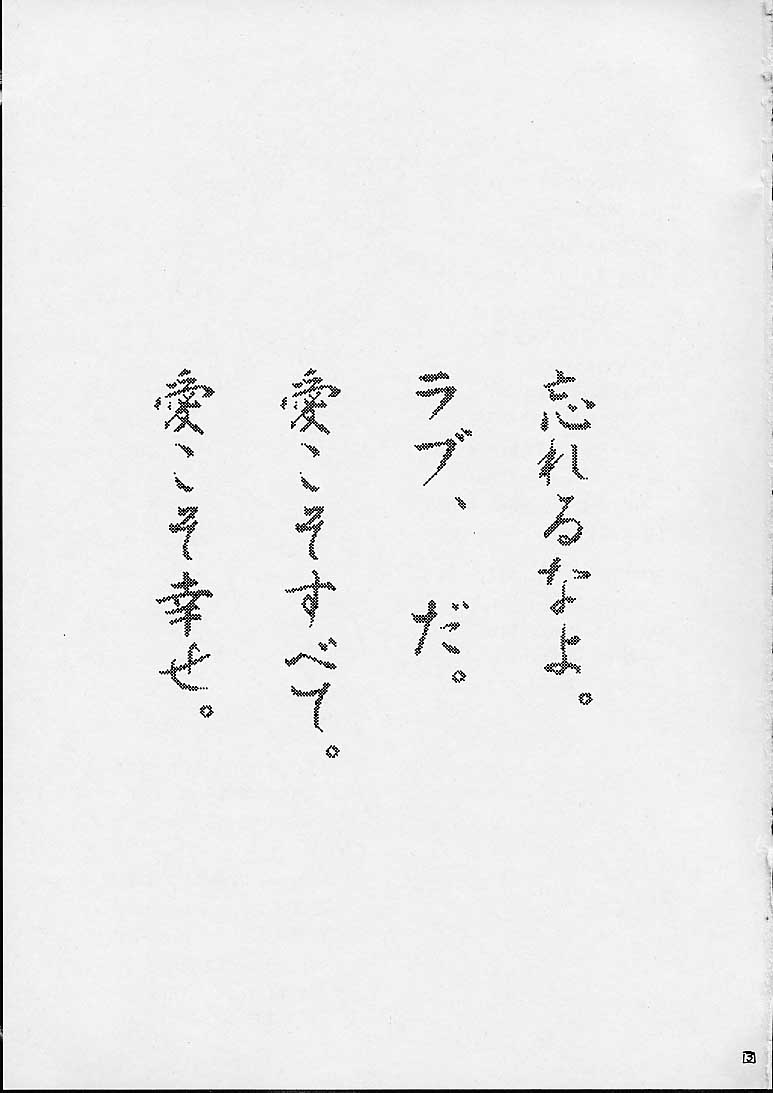 忘れるなよ。
ラブ、だ。
愛こそすべて。
愛こそ幸せ。
3